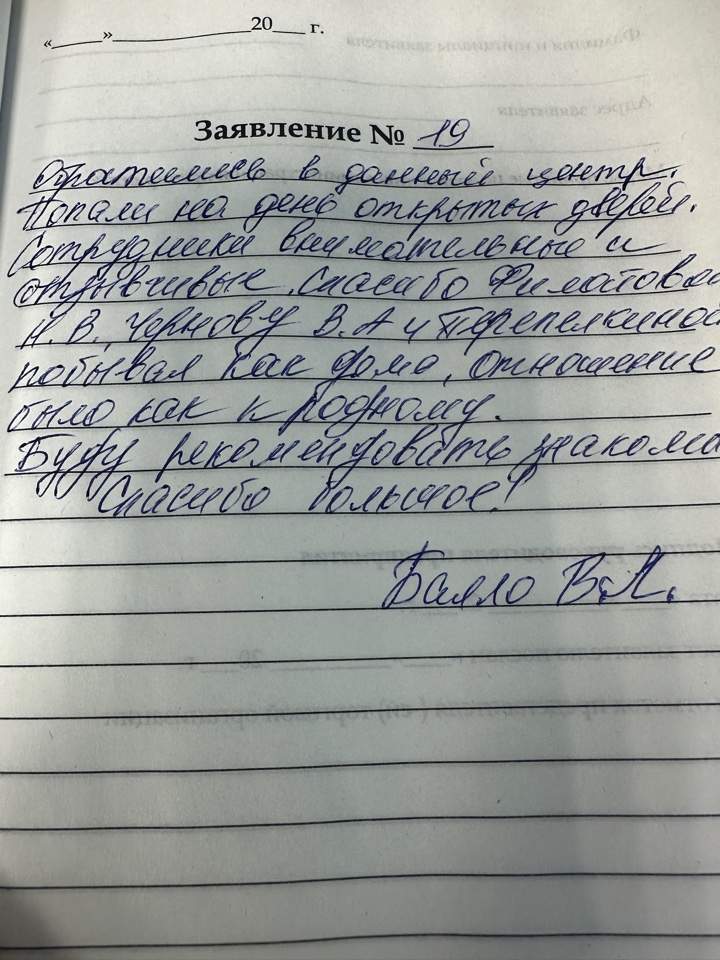 «_____»_______________20___ г.
Заявление № 19
Обратились в данный центр.
Попали на день открытых дверей.
Сотрудники внимательные и
отзывчивые. Спасибо Филатовой
Н.В., Чернову В.А и Перепелкиной
побывал как дома, отношение
было как к родному.
Буду рекомендовать знакома
Спасибо большое!
Балло В.А.